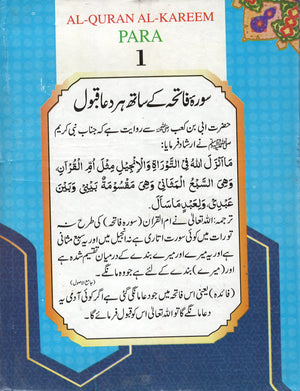 AL-QURAN AL-KAREEM
PARA
1
سورۂ فاتحہ کے ساتھ ہر دعا قبول
حضرت ابی بن کعب ؓ سے روایت ہے کہ جناب نبی کریم
ﷺ نے ارشاد فرمایا:
مَا اَنْزَلَ اللّٰهُ فِي التَّوْرَاةِ وَالْاِنْجِيْلِ مِثْلَ اُمِّ الْقُرْآنِ،
وَهِيَ السَّبْعُ الْمَثَانِيْ وَهِيَ مَقْسُوْمَةٌ بَيْنِيْ وَبَيْنَ
عَبْدِيْ، وَلِعَبْدِيْ مَا سَاَلَ۔
ترجمہ: اللہ تعالیٰ نے ام القرآن (سورہ فاتحہ) کی طرح نہ
تورات میں کوئی سورت اتاری ہے نہ انجیل میں اور یہ سبع مثانی
ہے اور یہ میرے اور میرے بندے کے درمیان تقسیم شدہ ہے
اور (میرے) بندے کے لئے ہے جو وہ مانگے۔
(فائدہ) یعنی اس فاتحہ میں جو دعا مانگی گئی ہے اگر کوئی آدمی یہ
دعا مانگے گا تو اللہ تعالیٰ اس کو قبول فرمائے گا۔